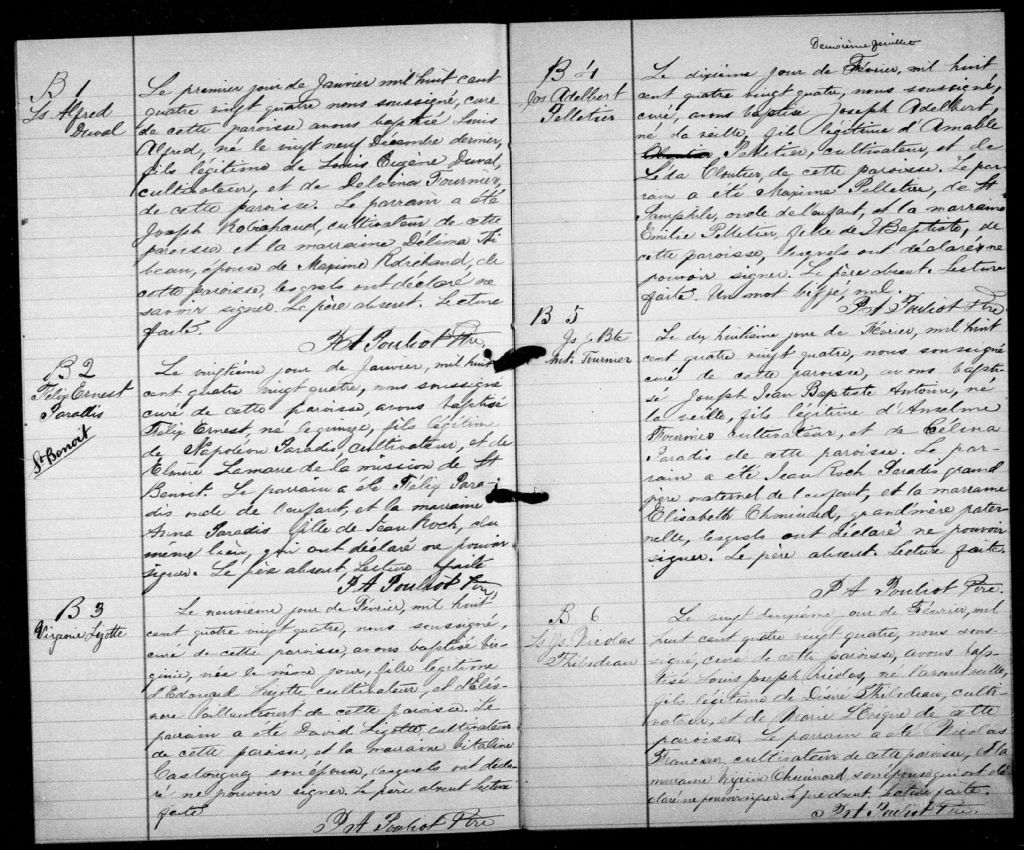 B 1
Ls Alfred
Duval
Le premier jour de Janvier mil huit cent
quatre vingt quatre nous soussigné, curé
de cette paroisse avons baptisé Louis
Alfred, né le vingt neuf Décembre dernier,
fils légitime de Louis Eugène Duval,
cultivateur, et de Delvina Fournier,
de cette paroisse. Le parrain a été
Joseph Robichaud, cultivateur de cette
paroisse et la marraine Délima
épouse de Maxime Robichaud, de
cette paroisse, lesquels ont déclaré ne
savoir signer. Le père absent. Lecture
faite.
P A Pouliot Ptre
B 2
Félix Ernest
Paradis
St Benoit
Le vingtième jour de Janvier, mil huit
cent quatre vingt quatre, nous soussigné
curé de cette paroisse, avons baptisé
Félix Ernest, né le quinze, fils légitime
de Napoléon Paradis, cultivateur, et de
Elmire Lamarre de la mission de St
Benoit. Le parrain a été Félix Para-
dis oncle de l'enfant, et la marraine
Anna Paradis fille de Jean Roch, du
même lieu, qui ont déclaré ne pouvoir
signer. Le père absent, Lecture faite
P A Pouliot Ptre
B 3
Virginie Lizotte
Le neuvième jour de Février, mil huit
cent quatre vingt quatre, nous soussigné,
curé de cette paroisse, avons baptisé Vir-
ginie, née le même jour, fille légitime
d'Edouard Lizotte cultivateur, et d'Eléo-
nore Vaillancourt de cette paroisse. Le
parrain a été David Lizotte, cultivateur
de cette paroisse, et la marraine Vitaline
Castonguay son épouse, lesquels ont décla-
ré ne pouvoir signer. Le père absent Lecture
faite
P A Pouliot Ptre
Deuxième feuillet
B 4
Jos Adelbert
Pelletier
Le dixième jour de Février, mil huit
cent quatre vingt quatre, nous soussigné,
curé, avons baptisé Joseph Adelbert,
né la veille, fils légitime d'Amable
Pelletier, cultivateur, et de
Léda Cloutier, de cette paroisse. Le par-
rain a été Maxime Pelletier, de St
Pamphile, oncle de l'enfant, et la marraine
Emilie Pelletier, fille de J Baptiste, de
cette paroisse, lesquels ont déclaré ne
pouvoir signer. Le père absent. Lecture
faite. Un mot biffé, nul.
P A Pouliot Ptre
B 5
Js J Bte
Ant. Fournier
Le dix huitième jour de Février, mil huit
cent quatre vingt quatre, nous soussigné
curé de cette paroisse, avons bapti-
sé Joseph Jean Baptiste Antoine, né
la veille, fils légitime d'Anselme
Fournier cultivateur, et de Célina
Paradis de cette paroisse. Le par-
rain a été Jean Roch Paradis grand
père maternel de l'enfant, et la marraine
Elisabeth Chouinard, grand mère pater-
nelle, lesquels ont déclaré ne pouvoir
signer. Le père absent. Lecture faite.
P A Pouliot Ptre.
B 6
Ls Js Nicolas
Thibodeau
Le vingt deuxième jour de Février, mil
huit cent quatre vingt quatre, nous sous-
signé, curé de cette paroisse, avons bap-
tisé Louis Joseph Nicolas, né l'avant veille,
fils légitime de Désiré Thibodeau, culti-
vateur, et de Marie de cette
paroisse. Le parrain a été Nicolas
Francoeur, cultivateur de cette paroisse, et la
marraine Chouinard, son épouse qui ont dé-
claré ne pouvoir signer. Le père absent Lecture faite.
P A Pouliot Ptre.